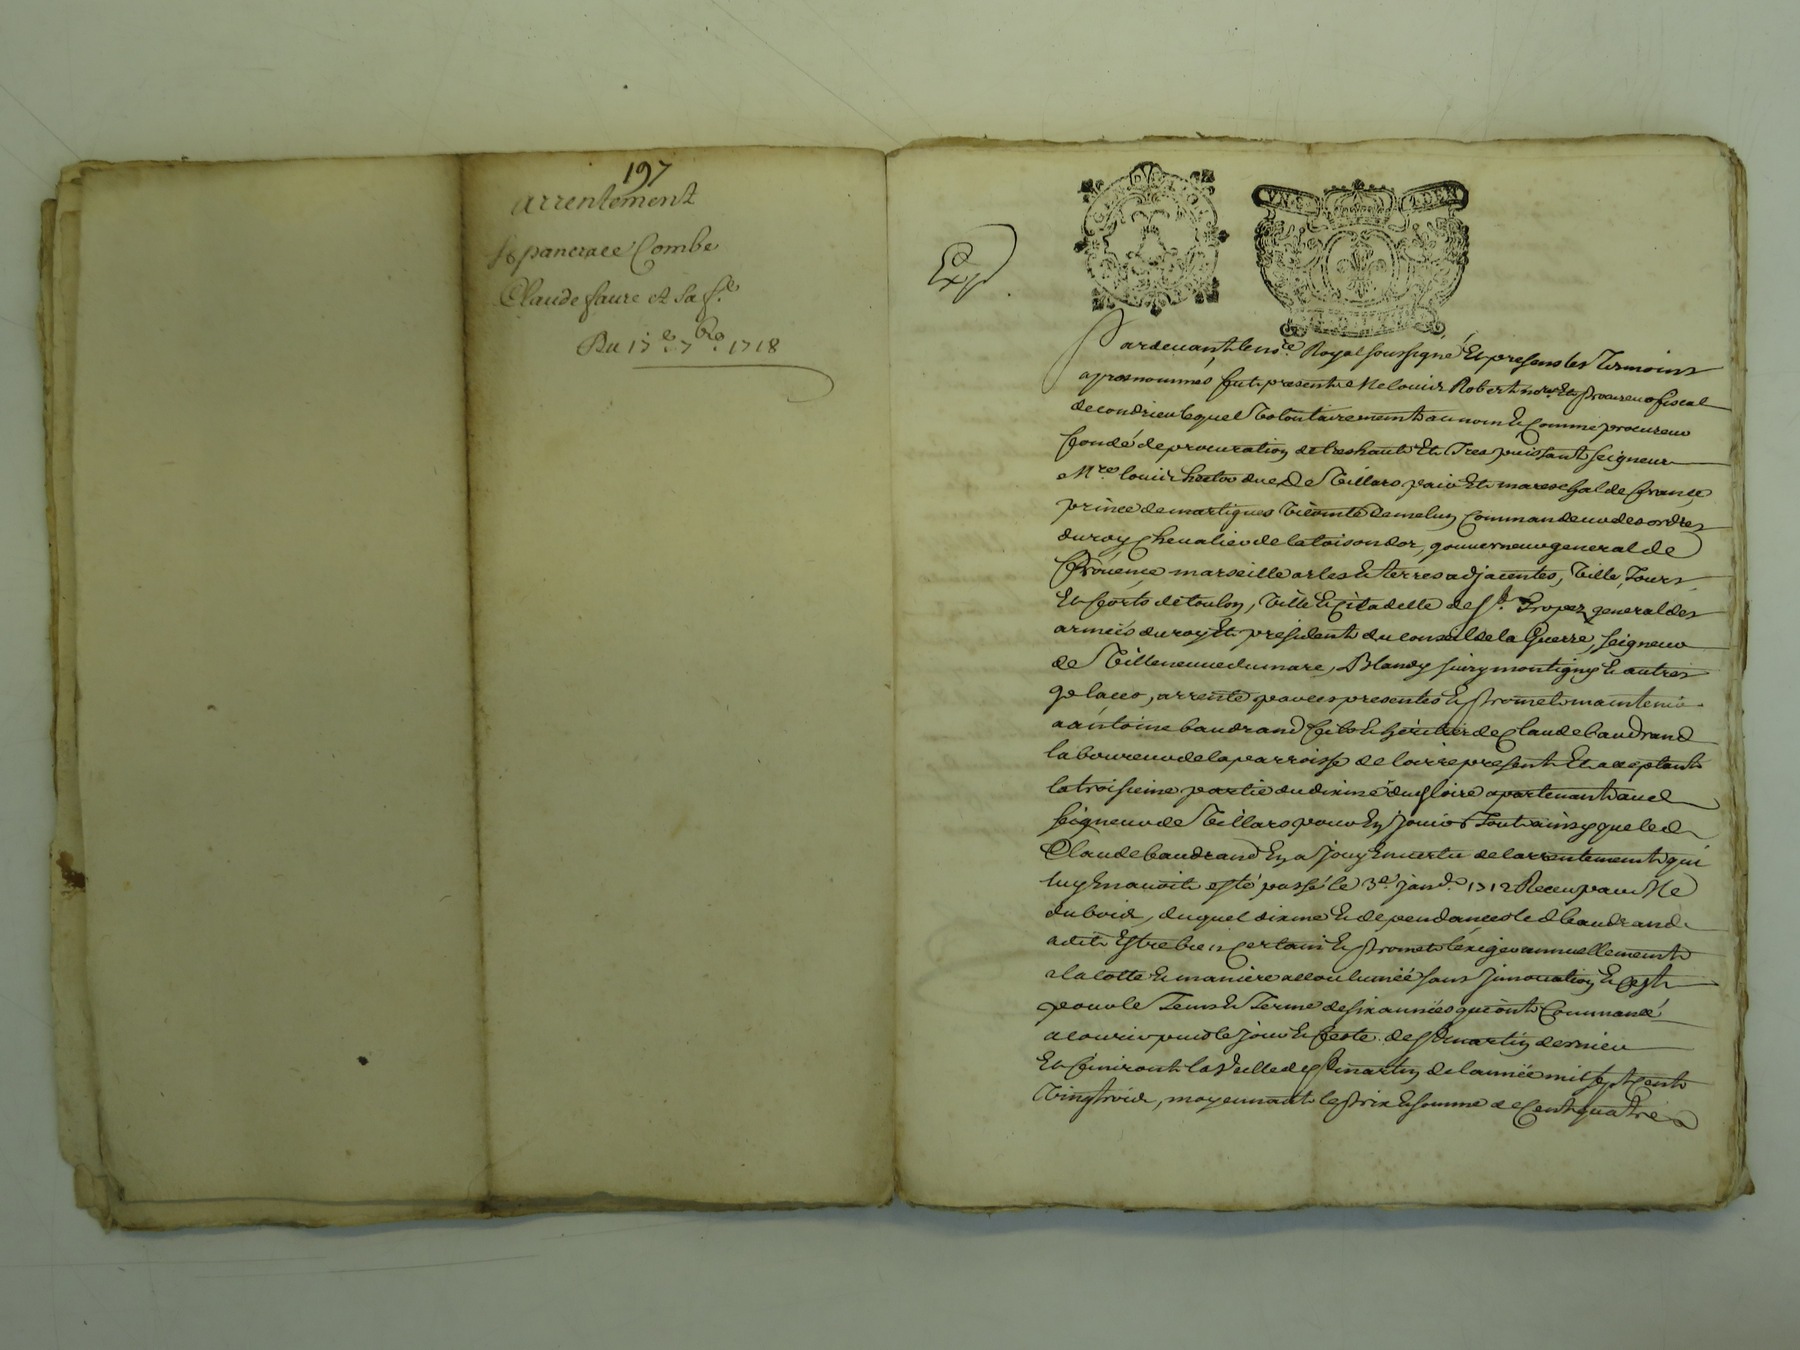 197
arrentement
Sr pancrace Combe
Claude faure et sa fe
Du 17e 7bre 1718
Exp
Pardevant le nore Royal soussigné Et presens les Temoins
apres nommés fut present Me louis Robert nore Et procureur fiscal
de condrieu lequel Volontairement au nom Et Comme procureur
fondé de procuration de tres haut Et Tres puissant seigneur
Mre louis hector duc De Villars pair Et mareschal de france
prince de martigues Vicomte de melun Commandeur des ordres
du roy chevalier de la toison dor, gouverneur general de
Provence marseille arles Et terres adjacentes, Ville, Tours
Et forts de toulon, Ville Et Citadelle de St. Tropez general des
armées du roy Et president du conseil de la Guerre, seigneur
de Villeneuve dumare, Blandy sivry montigny Et autres
places, arrente par ces presentes Et promet maintenir
a antoine baudrand fils Et heritier de Claude baudrand
laboureur de la parroisse de loire present Et acceptant
la troisieme partie du dixme du loire apartenant aud
seigneur de Villars pour En jouir Tout ainsy que led
Claude baudrand En a jouy En vertu de larrentement qui
luy En avoit esté passé le 3e janv. 1712 Receu par Me
dubois, duquel dixme Et dependances led baudrand
a dit Estre bien Certain Et promet lexiger annuellement
a la cotte Et maniere accoutumée sans Innovation Et Cest
pour le Tems Et Terme de six années qui ont Commancé
a courir puis le jour Et feste de St martin dernier
Et finiront la Veille de St martin de lannée mil sept Cent
Vingt trois, moyennant le prix Et somme de Cent quatre